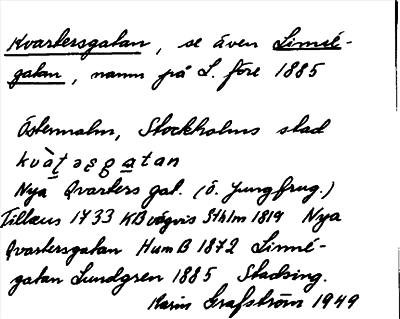 Kvartersgatan, se även Linné-
gatan, namn på L. före 1885
Östermalm, Stockholms stad
kvàʈəʂgatan
Nya Qvarters gat. (Ö. Jungfrug.)
Tillæus 1733 KB vägvis Sthlm 1819 Nya
Qvartersgatan HumB 1872 Linné-
gatan Lundgren 1885 Stadsing.
Karin Grafström 1949